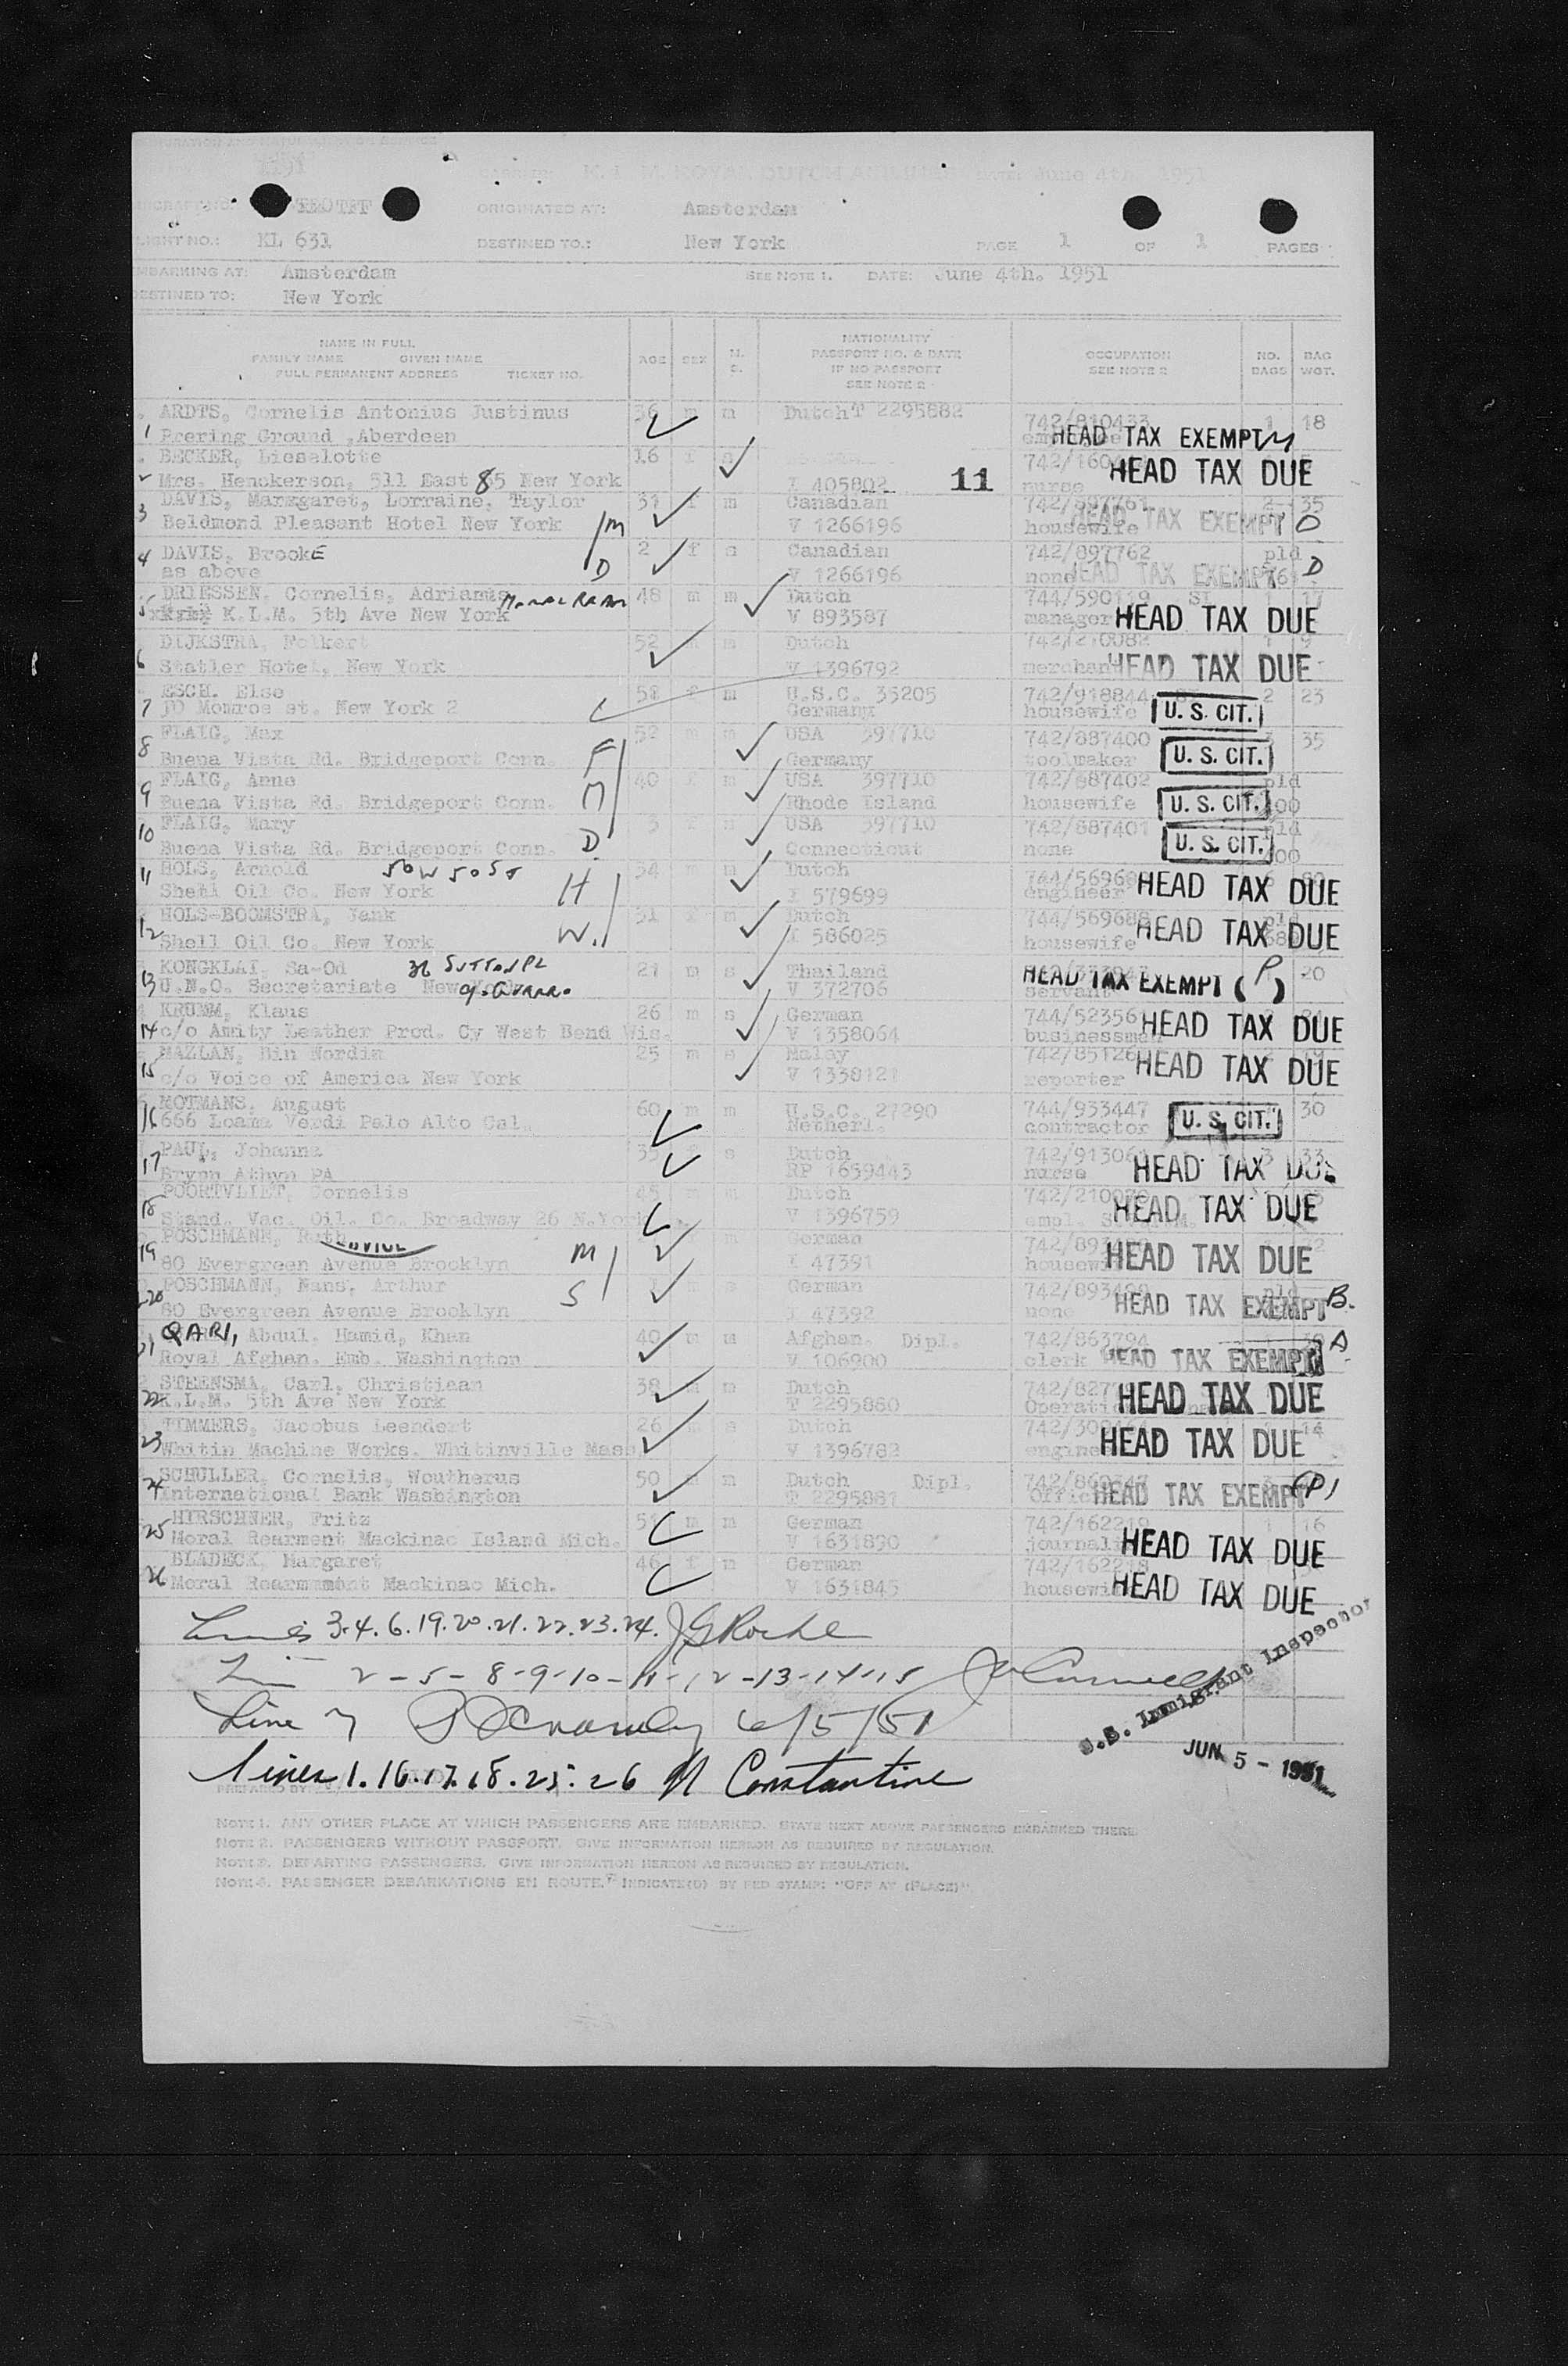 K. L. M. ROYAL DUTCH AIRLINES June 4th. 1951
ORIGINATED AT: Amsterdam
FLIGHT NO.: KL 631 DESTINED TO.: New York PAGE 1 OF 1 PAGES
EMBARKING AT: Amsterdam SEE NOTE 1. DATE: June 4th. 1951
DESTINED TO: New York
NAME IN FULL
FAMILY NAME GIVEN NAME
FULL PERMANENT ADDRESS TICKET NO.
AGE SEX M. S.
NATIONALITY
PASSPORT NO. & DATE
IF NO PASSPORT
SEE NOTE 2
OCCUPATION
SEE NOTE 2
NO. BAGS
BAG WGT.
ARDTS, Cornelis Antonius Justinus 36 m m Dutch T 2295882 742/810433 1 18
1 Ground, Aberdeen HEAD TAX EXEMPT
BECKER, Lieselotte 16 f s
2 Mrs. Henckerson, 511 East 85 New York I 405802 11 nurse HEAD TAX DUE
DAVIS, Margaret, Lorraine, Taylor 31 f m Canadian 742/897761 2 35
3 Beldmond Pleasant Hotel New York M V 1266196 housewife HEAD TAX EXEMPT D
4 DAVIS, BrookE 2 f s Canadian 742/897762 pld
as above D V 1266196 none HEAD TAX EXEMPT D
DRIESSEN, Cornelis, Adrianus 48 m m Dutch 744/590119 1 17
5 K.L.M. 5th Ave New York V 893587 manager HEAD TAX DUE
DIJKSTRA, Folkert 52 m m Dutch 742/210082 1 9
6 Statler Hotel, New York V 1396792 merchant HEAD TAX DUE
ESCH. Else 58 f m U.S.C. 35205 742/918844 2 23
7 10 Monroe st. New York 2 Germany housewife U. S. CIT.
FLAIG, Max 52 m m USA 397710 742/887400 35
8 Buena Vista Rd. Bridgeport Conn. F Germany toolmaker U. S. CIT.
FLAIG, Anna 40 f m USA 397710 742/887402 pld
9 Buena Vista Rd. Bridgeport Conn. M Rhode Island housewife U. S. CIT.
FLAIG, Mary 3 f s USA 397710 742/887401 pld
10 Buena Vista Rd. Bridgeport Conn. D. Connecticut none U. S. CIT.
11 HOLS, Arnold 50 W 50 ST 34 m m Dutch
Shell Oil Co. New York H I 579699 engineer HEAD TAX DUE
HOLS-BOOMSTRA, Jank 31 f m Dutch 744/569688 pld
12 Shell Oil Co. New York W. I 586025 housewife HEAD TAX DUE
KONGKLAI, Sa-Od 36 SUTTON PL 21 m s Thailand 20
13 U.N.O. Secretariate New York V 372706 servant HEAD TAX EXEMPT (P)
KRUMM, Klaus 26 m s German
14 c/o Amity Leather Prod. Cy West Bend Wis. V 1358064 businessman HEAD TAX DUE
MAZLAN, Bin Nordin 25 m s Malay
15 c/o Voice of America New York V 1338121 reporter HEAD TAX DUE
MOTMANS. August 60 m m U.S.C. 27290 744/933447 30
16 666 Loama Verdi Palo Alto Cal. Netherl. contractor U. S. CIT.
PAUL, Johanna 35 s Dutch 3 33
17 Bryan Athyn PA RP 1659443 nurse HEAD TAX DUE
POORTVLIET, Cornelis 45 m m Dutch
18 Stand. Vac. Oil. Co. Broadway 26 N.York V 1396759 empl. HEAD TAX DUE
POSCHMANN, Ruth m German
19 80 Evergreen Avenue Brooklyn M I 47391 housewife HEAD TAX DUE
POSCHMANN, Hans. Arthur s German pld
20 80 Evergreen Avenue Brooklyn S I 47392 none HEAD TAX EXEMPT B.
QARI, Abdul. Hamid, Khan 40 m m Afghan. Dipl. 742/863794
21 Royal Afghan. Emb. Washington V 106900 clerk HEAD TAX EXEMPT A
STEENSMA, Carl. Christiaan 38 m m Dutch
22 K.L.M. 5th Ave New York T 2295880 HEAD TAX DUE
TIMMERS, Jacobus Leendert 26 m s Dutch 14
23 Whitin Machine Works. Whitinville Mass. V 1396782 engineer HEAD TAX DUE
SCHULLER, Cornelis, Woutherus 50 m m Dutch Dipl.
24 International Bank Washington T 2295881 HEAD TAX EXEMPT (P)
HIRSCHNER, Fritz 51 m m German 742/162219 1 16
25 Moral Rearment Mackinac Island Mich. V 1631890 journalist HEAD TAX DUE
BLADECK, Margaret 46 f m German 742/162218
26 Moral Rearmmment Mackinac Mich. V 1631845 housewife HEAD TAX DUE
Lines 3.4.6.19.20.21.22.23.24. J G Roche
Line 2-5-8-9-10-11-12-13-14-15
Line 7 6/5/51
Lines 1.16.17.18.25.26 N Constantine
U.S. Immigrant Inspector
JUN 5 - 1951
PREPARED BY:
NOTE 1. ANY OTHER PLACE AT WHICH PASSENGERS ARE EMBARKED. STATE NEXT ABOVE PASSENGERS EMBARKED THERE.
NOTE 2. PASSENGERS WITHOUT PASSPORT. GIVE INFORMATION HEREON AS REQUIRED BY REGULATION.
NOTE 3. DEPARTING PASSENGERS. GIVE INFORMATION HEREON AS REQUIRED BY REGULATION.
NOTE 4. PASSENGER DEBARKATIONS EN ROUTE. INDICATE(D) BY RED STAMP: "OFF AT (PLACE)".